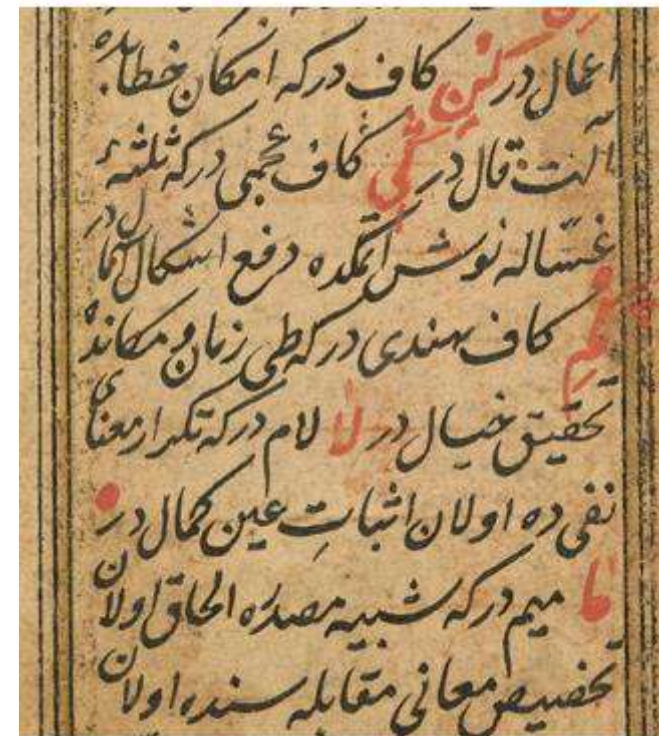 اعمال در كنن كاف دركه امكان خطابده
آلت قال در گی كاف عجمی دركه ثلثهٔ
غساله نوش ایتمكده رفع اشكال در
كاف هندی دركه طی زمان و مكانده
تحقیق خیال در لا لام دركه تكرار معنای
نفی ده اولان اثباتِ عین كمال در
ما میم دركه شبیه مصدره الحاق اولان
تخصیص معانی مقابله سنده اولان